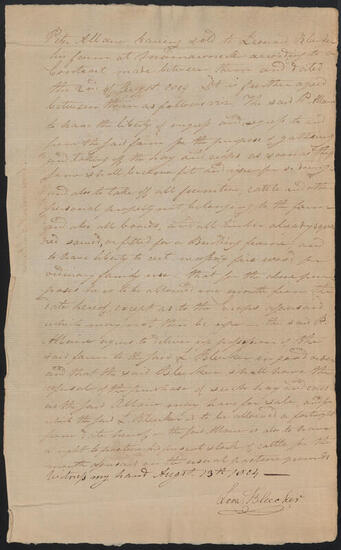 Peter Allaire having sold to Leonard Bleecker
his farm at Mamaroneck according to a
Contract made between them and dated
the 2nd of August 1804 It is further agreed
between them as follows viz. The said P. Allaire
to have the liberty of ingress and egress to and
from the said farm for the purpose of gathering
and taking off the hay and crops as soon as they
shall become fit and ripe for so doing
and also to take off all furniture cattle and other
personal property not belonging to the farm
and also all boards, and all timber already
sawed, or fitted for a Building
to have liberty to cut
ordinary family use that for the above pur
poses he is to be allowed one month from the
date hereof except as to the crops aforesaid
which may not then be ripe the said P.
Allaire agrees to deliver up possession of the
said farm to the said L Bleecker in good order
and that the said Bleecker shall have the
refusal of the purchase of such hay and
as the said Allaire may have for sale and
the said L Bleecker is to be allowed a fortnight
from date hereof the said Allaire is also to have
a right to pasture his present stock of cattle for the
month aforesaid on the usual pasture grounds
Witness my hand August 13th 1804
Leon. Bleecker